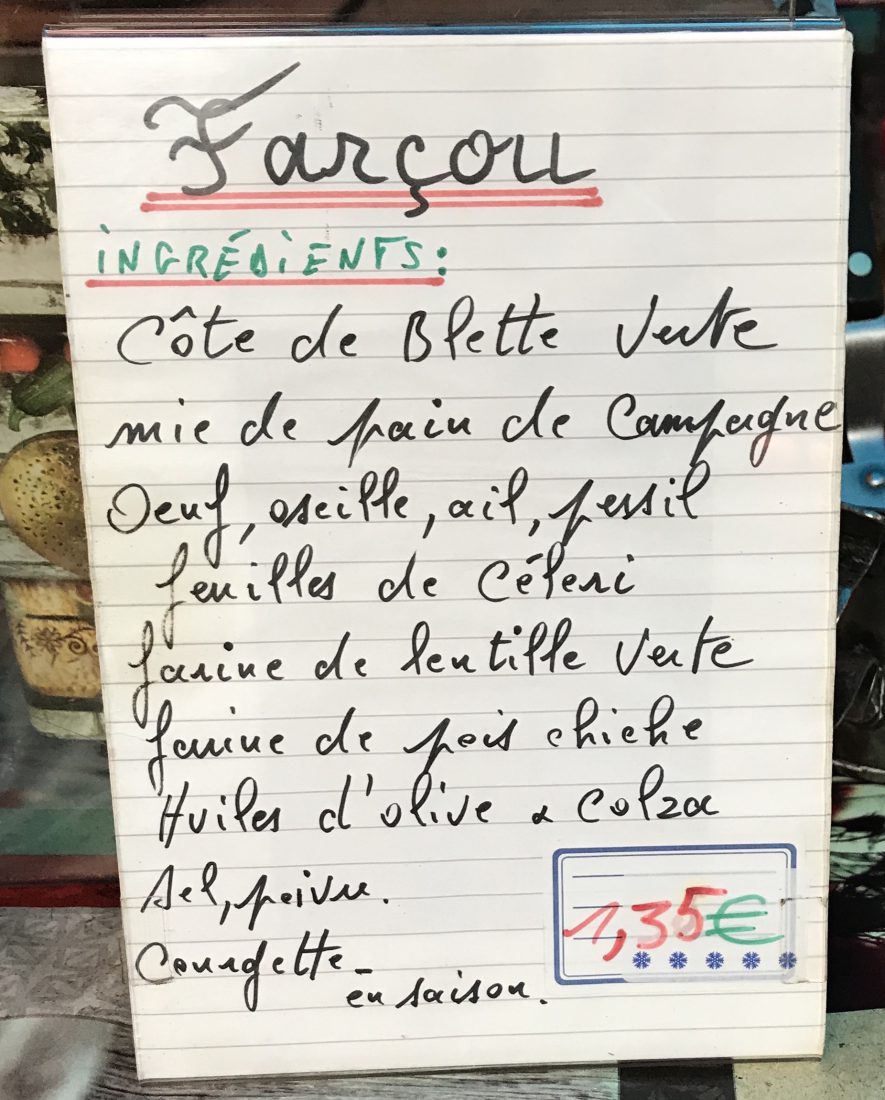 Farçou
INGRÉDIENTS:
Côte de Blette Verte
mie de pain de Campagne
Oeuf, oseille, ail, persil
feuilles de Céleri
farine de lentille verte
farine de pois chiche
Huiles d'olive & Colza
Sel, poivre.
Courgette -
en saison.
1,35€